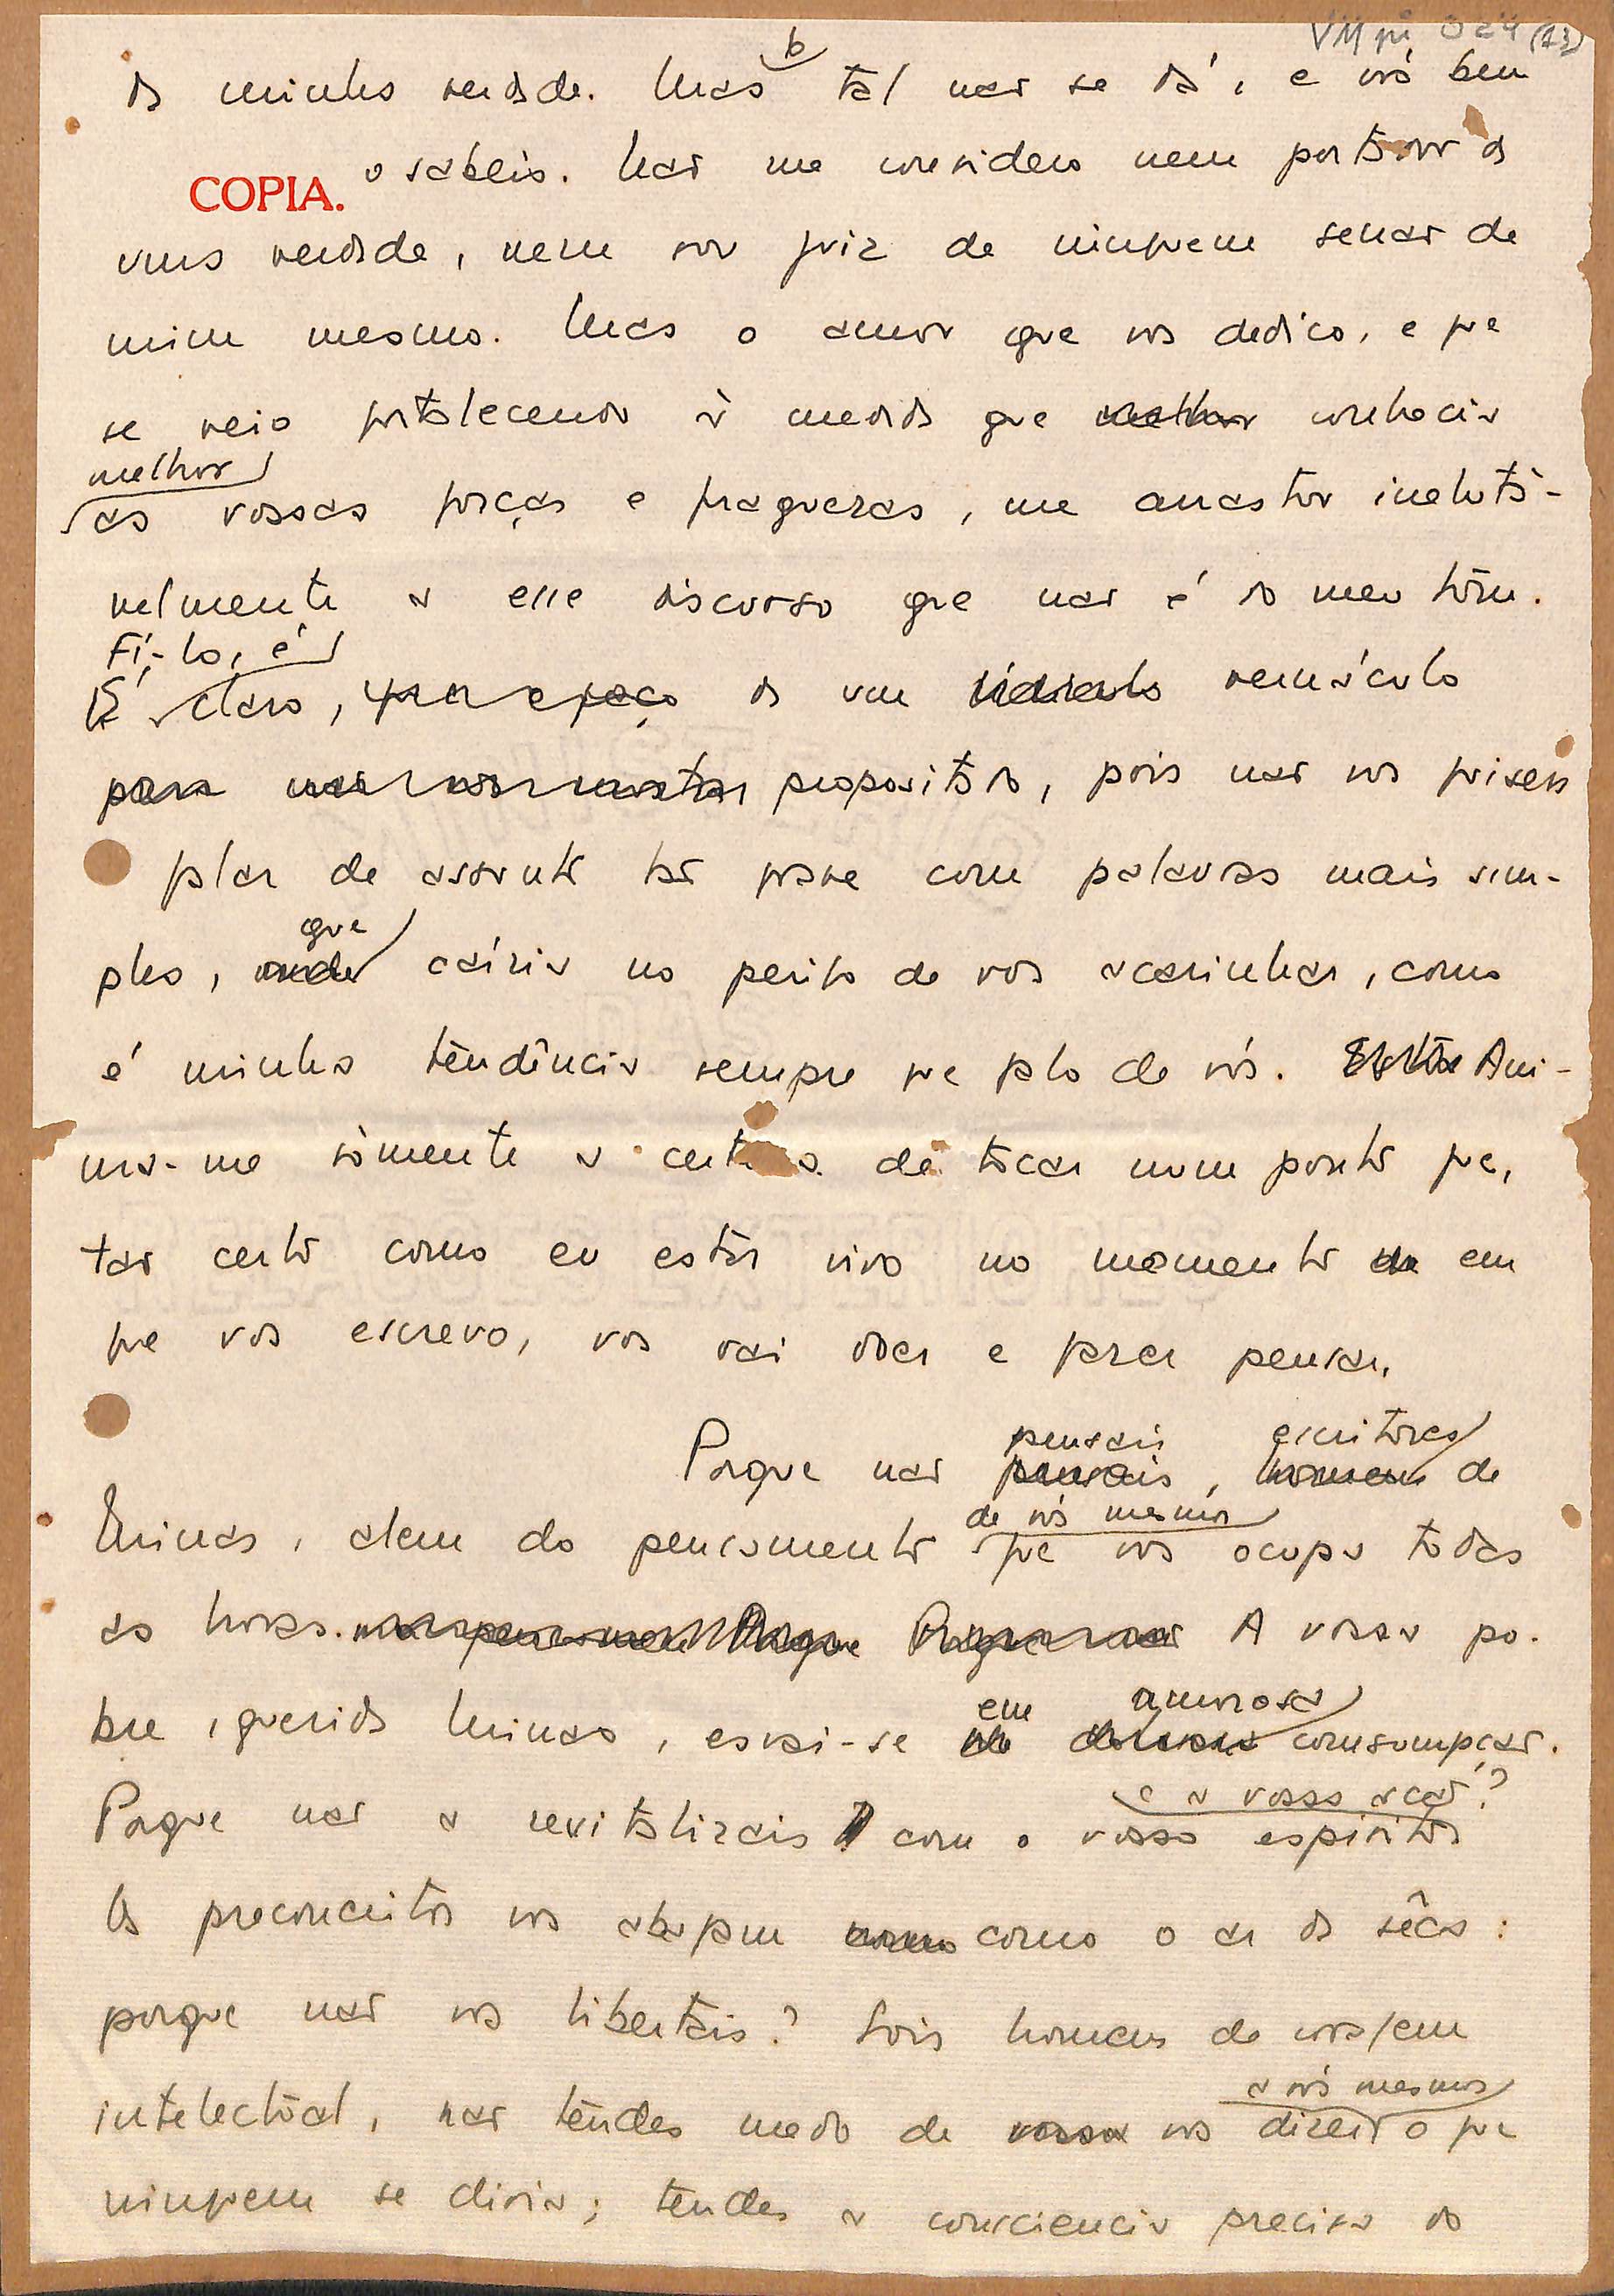 VM pi 024 (23)
b
da minha verdade. Mas tal não se dá, e vós bem
o sabeis. Não me considero nem portador da
COPIA.
uma verdade, nem sou juiz de ninguem senão de
mim mesmo. Mas o amor que vos dedico, e que
se veio fortalecendo à medida que melhor conhecia
melhor
as vossas forças e fraquezas, me arrastou inelutà-
velmente a esse discurso que não é do meu tom.
Fí-lo, é
É claro, da um vernáculo
para propositado, pois não vos quisera
falar de assunto tão grave com palavras mais sim-
que
ples, onde cairia no perigo de vos acarinhar, como
é minha tendência sempre que falo de vós. Ani-
ma-me sòmente a certeza de tocar num ponto que,
tão certo como eu estar vivo no momento de em
que vos escrevo, vos vai doer e fazer pensar.
pensais escritores
Porque não pensais, homens de
de vós mesmos
Minas, alem do pensamento que vos ocupa todas
as horas. Porque não A vossa po-
em amorosa
bre, querida Minas, esvai-se de dolorosa comsumpção.
e a vossa ação?
Porque não a revitalizais com o vosso espírito
Os preconceitos vos abafam como como o ar da sêca:
porque não vos libertais? Sois homens de coragem
a vós mesmos
intelectual, não tendes medo de vossa vos dizer o que
ninguem se diria; tendes a consciencia precisa do